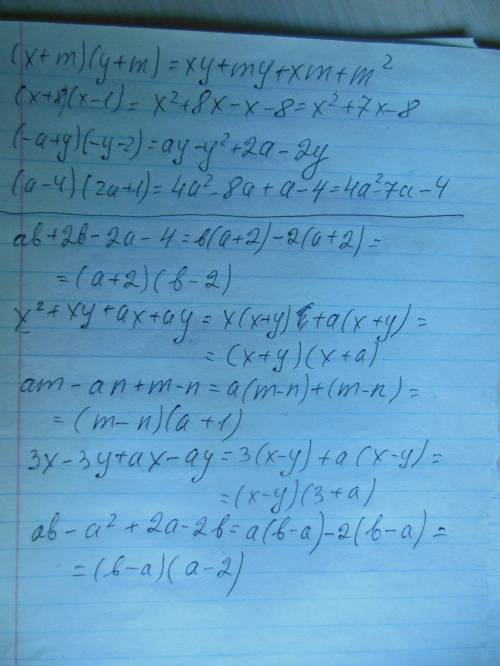 (x+m)(y+m)=xy+my+xm+m²
(x+8)(x-1)= x²+8x-x-8=x²+7x-8
(-a+y)(-y-2)=ay-y²+2a-2y
(a-4)(2a+1)=4a²-8a+a-4=4a²-7a-4
ab+2b-2a-4=b(a+2)-2(a+2)=
=(a+2)(b-2)
x²+xy+ax+ay=x(x+y)+a(x+y)=
=(x+y)(x+a)
am-an+m-n=a(m-n)+(m-n)=
=(m-n)(a+1)
3x-3y+ax-ay=3(x-y)+a(x-y)=
=(x-y)(3+a)
ab-a²+2a-2b=a(b-a)-2(b-a)=
=(b-a)(a-2)